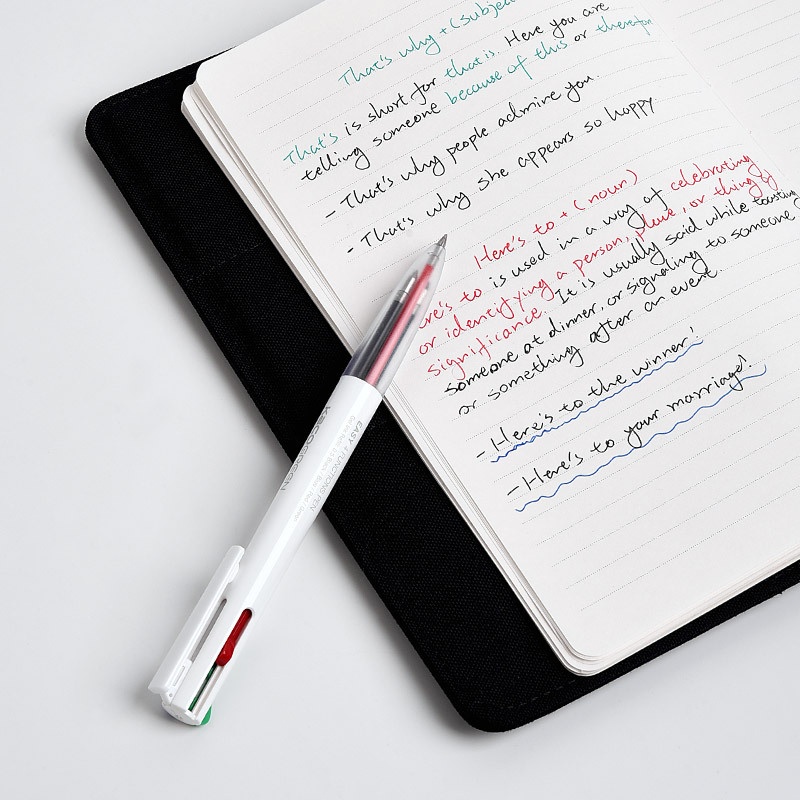 That's why + (subject
That's is short for that is. Here you are
telling someone because of this or therefore
- That's why people admire you.
- That's why she appears so happy
Here's to + (noun)
Here's to is used in a way of celebrating
or identifying a person, place, or thing of
significance. It is usually said while toasting
someone at dinner, or signaling to someone
or something after an event.
- Here's to the winner!
- Here's to your marriage!
KACOGREEN
EASY 4 FUNCTIONS PEN